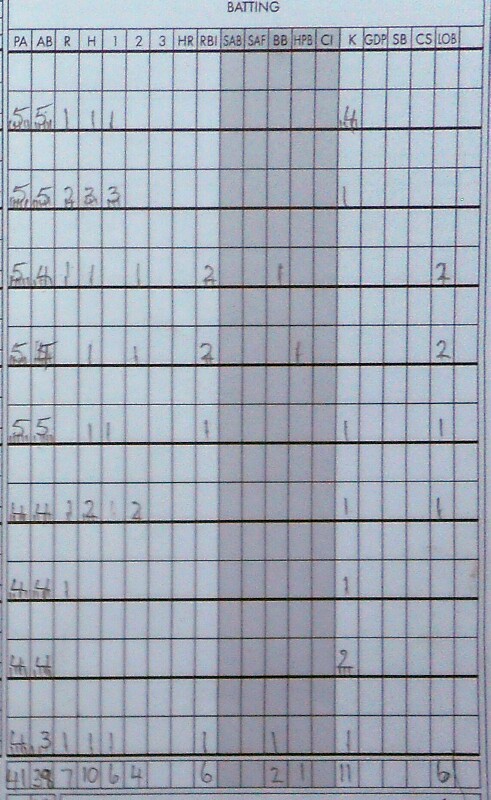 BATTING
PA AB R H 1 2 3 HR RBI SAB SAF BB HPB CI K GDP SB CS LOB
5 5 1 1 1 4
5 5 2 3 3 1
5 4 1 1 1 2 1 2
5 1 1 2 1 2
5 5 1 1 1 1 1
4 4 1 2 2 1 1
4 4 1 1
4 4 2
4 3 1 1 1 1 1 1
41 38 7 10 6 4 6 2 1 11 6